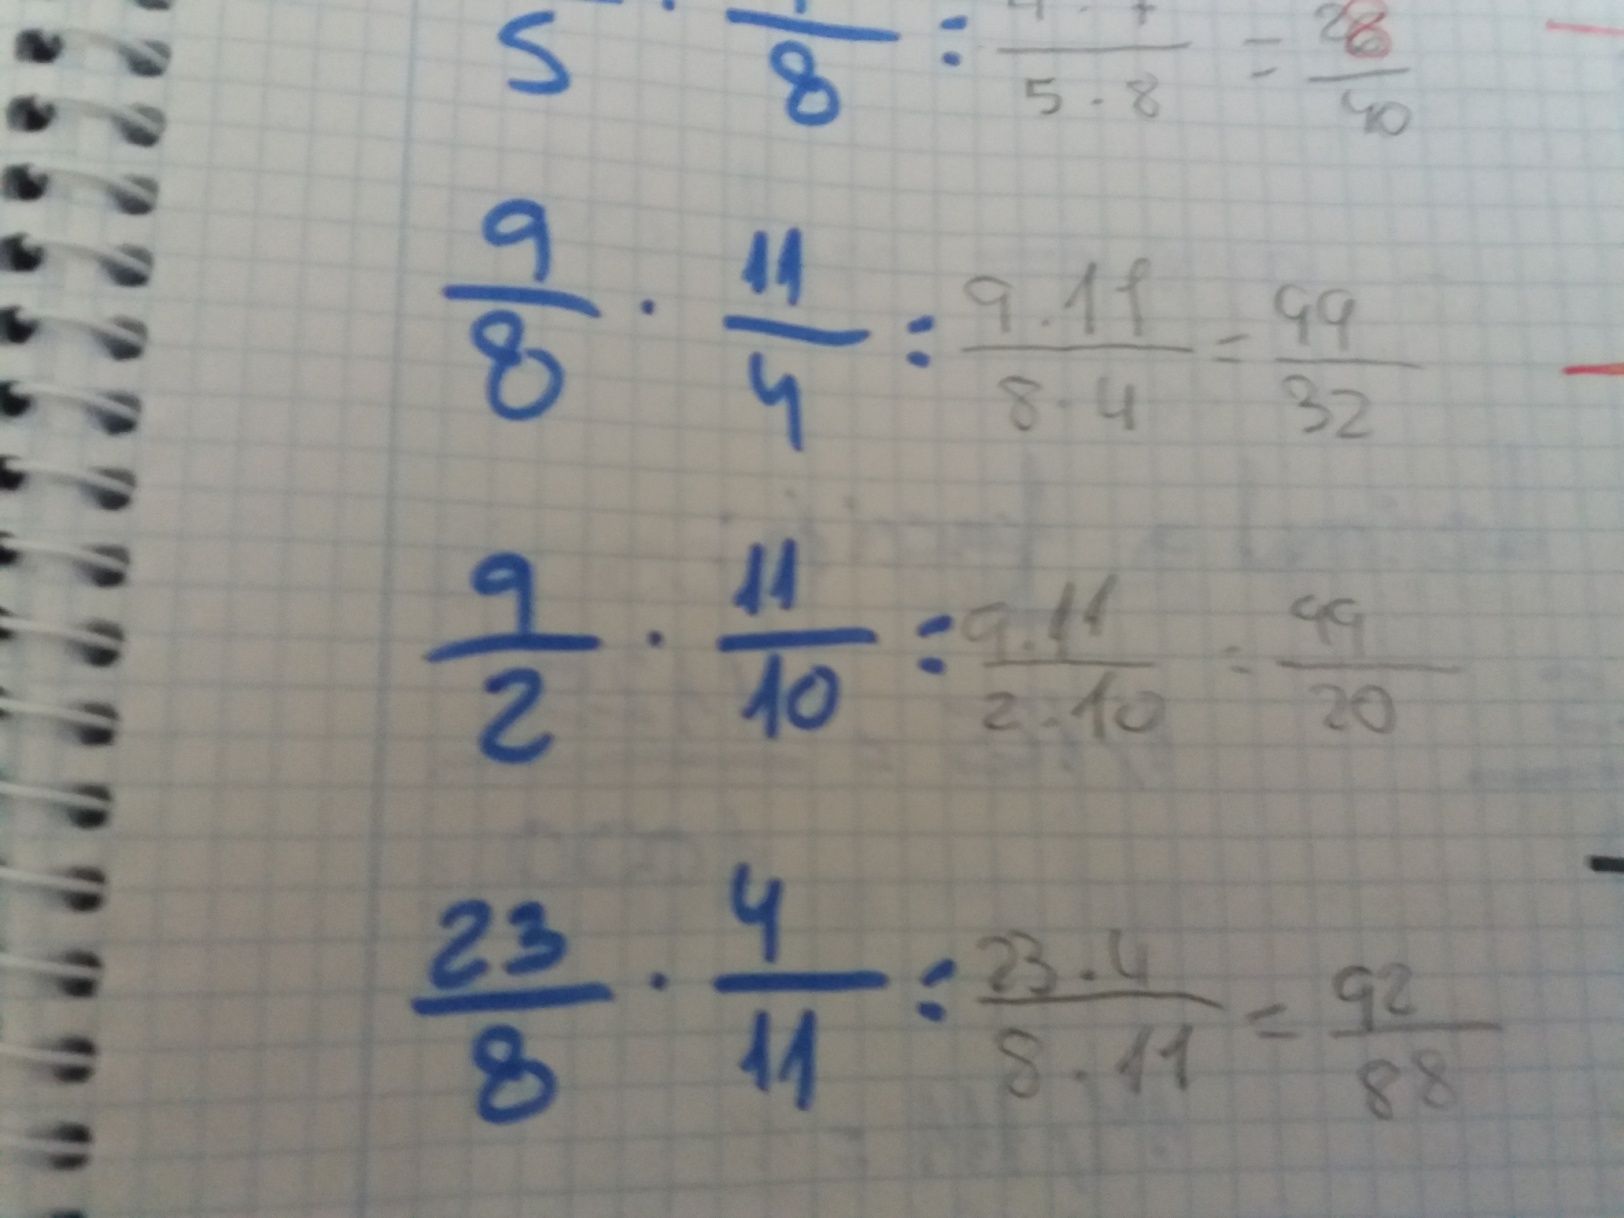 5 · 8 = 5 · 8 = 28/40
9/8 · 11/4 = 9·11/8·4 = 99/32
9/2 · 11/10 = 9·11/2·10 = 99/20
23/8 · 4/11 = 23·4/8·11 = 92/88